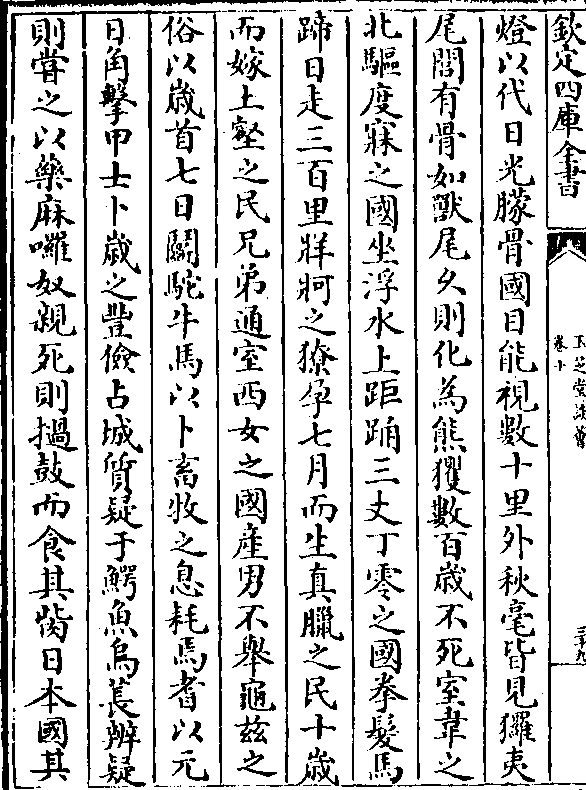 欽定四庫全書
玉芝堂談薈
卷十
三十九
燈以代日光朦骨國目能視數十里外秋毫皆見玀夷
尾閭有骨如獸尾久則化為熊玃數百歳不死室韋之
北驅度寐之國坐浮水上距踊三丈丁零之國拳髮馬
蹄日走三百里牂牁之獠孕七月而生真臘之民十歳
而嫁土壑之民兄弟通室西女之國產男不舉龜兹之
俗以歳首七日鬭駝牛馬以卜畜牧之息耗焉耆以元
日角擊甲士卜歳之豐儉占城質疑于鰐魚烏萇辨疑
則嘗之以藥麻囉奴親死則撾鼓而食其胔日本國其